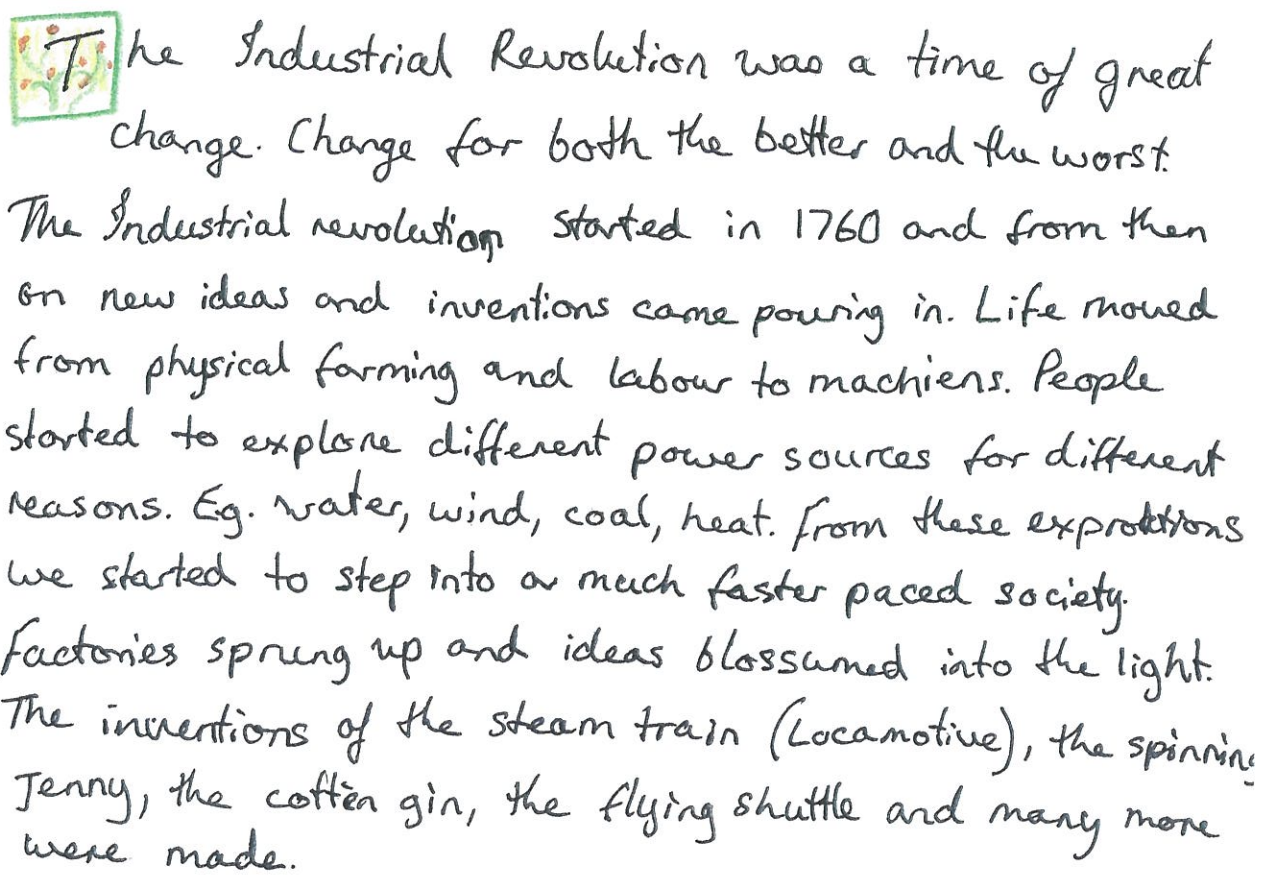 The Industrial Revolution was a time of great
change. Change for both the better and the worst.
The Industrial revolution started in 1760 and from then
on new ideas and inventions came pouring in. Life moved
from physical farming and labour to machiens. People
started to explore different power sources for different
reasons. Eg. water, wind, coal, heat. From these
we started to step into a much faster paced society.
Factories sprung up and ideas blossumed into the light.
The inventions of the steam train (Locamotive), the spinning
Jenny, the cotten gin, the flying shuttle and many more
were made.